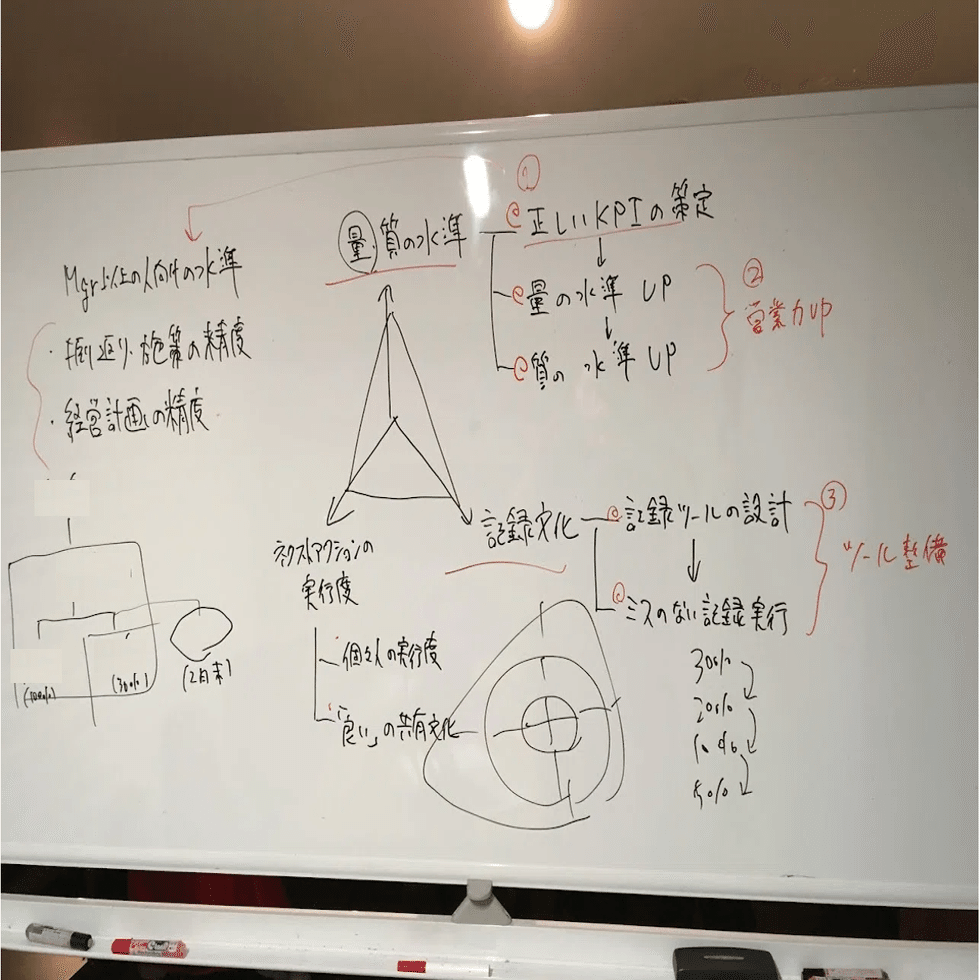 ①
量・質の水準
正しいKPIの策定
量の水準 UP
質の水準 UP
②
営業力UP
Mgr以上の人向けの水準
・振り返り・施策の精度
・経営計画の精度
(100%)
(30%)
(12月末)
ネクストアクションの
実行度
個々人の実行度
「良い」の共有文化
記録文化
記録ツールの設計
ミスのない記録実行
③
ツール整備
30%
20%
10%
5%